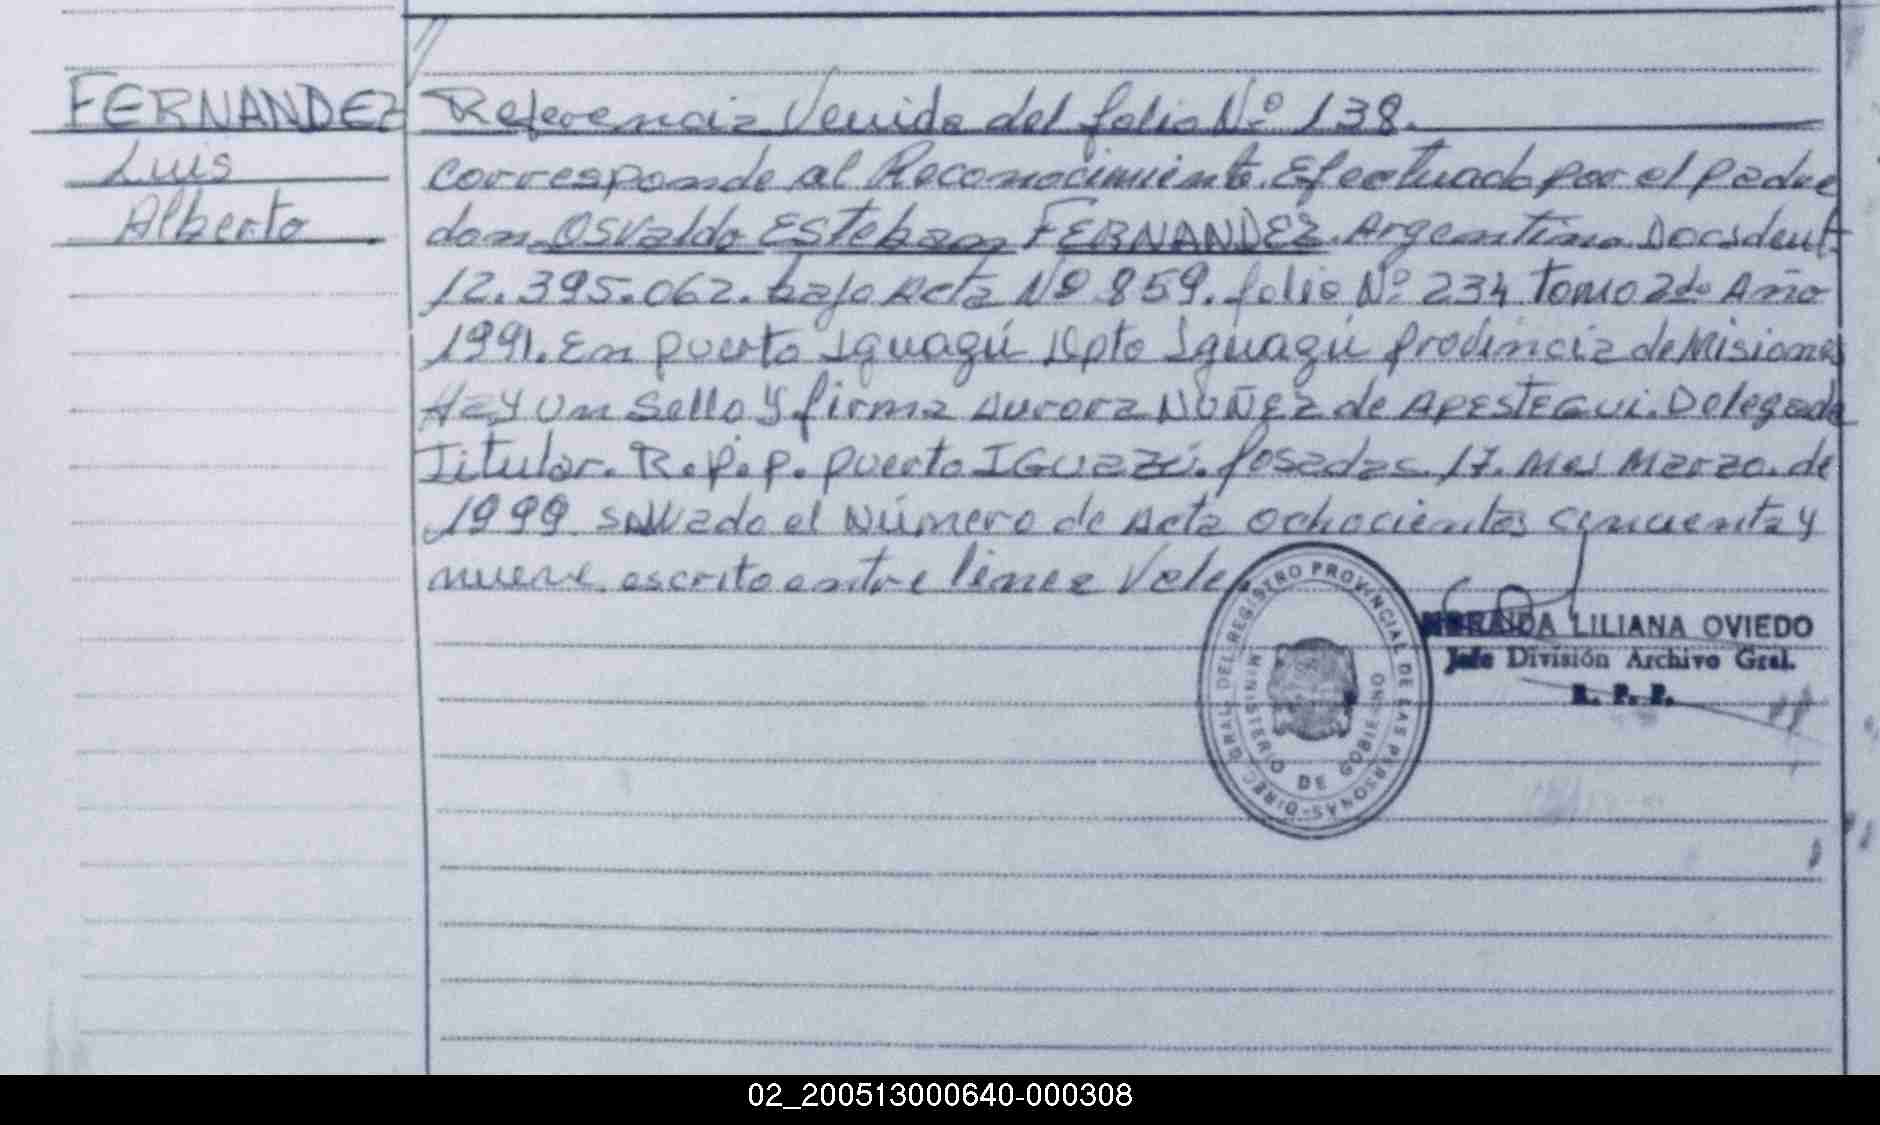 FERNANDEZ
Luis
Alberto
Referencia Venida del folio Nº 138.
corresponde al Reconocimiento Efectuado por el padre
don Osvaldo Esteban FERNANDEZ. Argentino Doc.Ident
12.395.062. bajo Acta Nº 859. folio Nº 234 tomo 2do Año
1991. En puerto Iguazú Dpto Iguazú provincia de Misiones
Hay un Sello y firma Aurora NUÑEZ de APESTEGUI. Delegada
Titular. R.p.p. puerto IGUAZÚ. posadas. 17. mes marzo. de
1999 salvado el Número de Acta ochocientos cincuenta y
nueve escrito entre linea Vale.
DIREC. GRAL. DEL REGISTRO PROVINCIAL DE LAS PERSONAS-
MINISTERIO DE GOBIERNO
LILIANA OVIEDO
Jefe División Archivo Gral.
R. P. P.
02_200513000640-000308